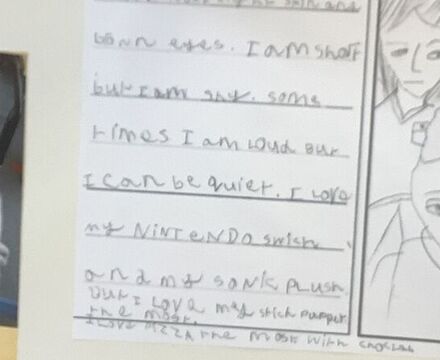 skin and
bown eyes. I am short
but I am shy. some
times I am Loud but
I can be quiet. I Love
my NiNTeNDO swich
and my sonic pLush
But I Love my stick pupper
the most.
I Love pizza the most with